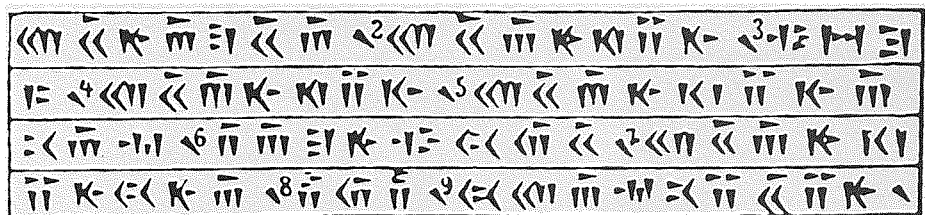 𐎧𐏁𐎹𐎠𐎼𐏁𐎠 𐏐2 𐎧𐏁𐎠𐎹𐎰𐎡𐎹 𐏐3 𐎺𐏀𐎼
𐎣 𐏐4 𐎧𐏁𐎠𐎹𐎰𐎡𐎹 𐏐5 𐎧𐏁𐎠𐎹𐎰𐎡𐎹𐎠
𐎴𐎠𐎶 𐏐6 𐎭𐎠𐎼𐎹𐎺𐏃𐎢𐏁 𐏐7 𐎧𐏁𐎠𐎹𐎰
𐎡𐎹𐏃𐎹𐎠 𐏐8 𐎱𐎢𐏂 𐏐9 𐏃𐎧𐎠𐎶𐎴𐎡𐏁𐎡𐎹 𐏐